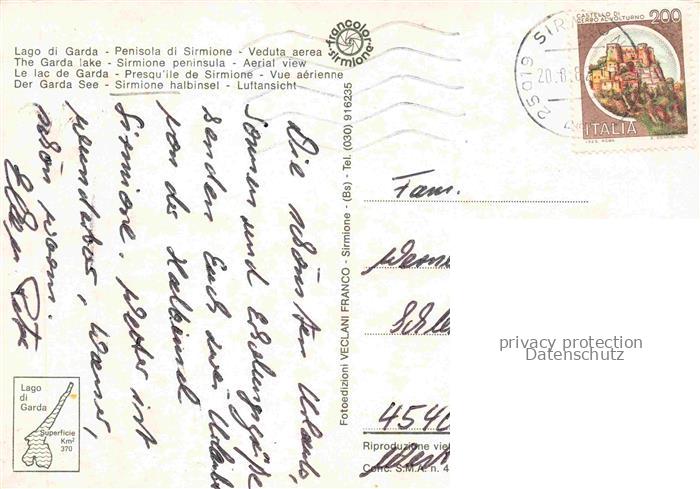 Lago di Garda - Penisola di Sirmione - Veduta aerea
The Garda lake - Sirmione peninsula - Aerial view
Le lac de Garda - Presqu'ile de Sirmione - Vue aérienne
Der Garda See - Sirmione halbinsel - Luftansicht
francolor
sirmione
CASTELLO DI
CERRO AL VOLTURNO
200
ITALIA
25019 SIRMIONE
20.8.8
Die schönsten Urlaubs,
Sonnen und Erholungsgrüße
senden Euch zwei Urlauber
von der Halbinsel
Sirmione. Wetter ist
wunderbar, Wasser,
schön warm.
Fotoedizioni VECLANI FRANCO - Sirmione - (Bs) - Tel. (030) 916235
Fam.
4540
Riproduzione viet
Conc. S.M.A. n. 4
privacy protection
Datenschutz
Lago
di
Garda
Superficie
Km²
370